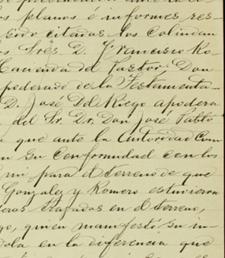 los planos é informes res
todo citados los colindan
tres D. Francisco Ro
Hacienda del Pastor, Don
poderado de la Testamenta
D. José Del Riego apodera
del Sr. Dr. Don José Pablo
que ante la Autoridad Com
su conformidad con los
para el terreno de que
Gonzalez y Romero estuvieron
trazados en el terreno,
quien manifestó su in
en la diferencia que